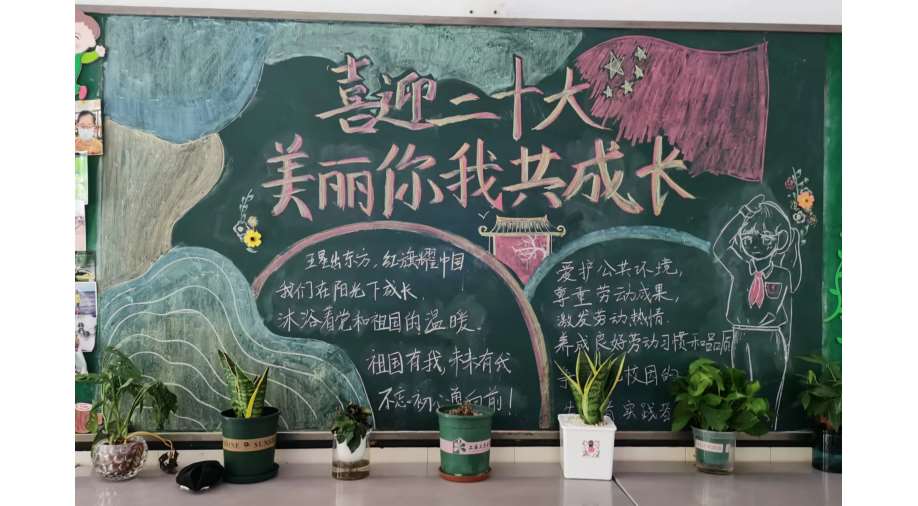 喜迎二十大
美丽你我共成长
五星出东方,红旗耀中国
我们在阳光下成长,
沐浴着党和祖国的温暖.
祖国有我,未来有我
不忘初心,勇向前!
爱护公共环境,
尊重劳动成果,
激发劳动热情.
养成良好劳动习惯和品质
校园的
实践
SUNSHINE